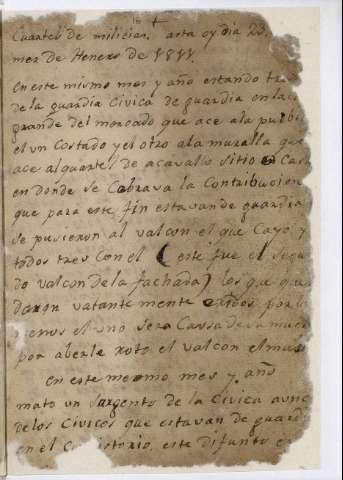 Cuartel de milicias. asta oy dia 23.
mes de Henero de 1811.
en este mismo mes y año estando tre
de la guardia Civica de guardia en la c
grande del morcado que ace a la pu
el un Costado y el otro a la muralla que
ace al quartel de acavallo sitio o Cas
en donde se Cobrava la Contribucion
que para este fin estavan de guardia
se pusieron al valcon el que Cayo y
todos tres con el ( este fue el segu
do valcon de la fachada) los que que
daron vatantemente eridos por lo
menos el uno sera Caussa de su muer
por aberle roto el valcon el mus
en este mesmo mes y año
mato un Sargento de la Civica a uno
de los Civicos que estavan de guard
en el Co istorio, este difunto e